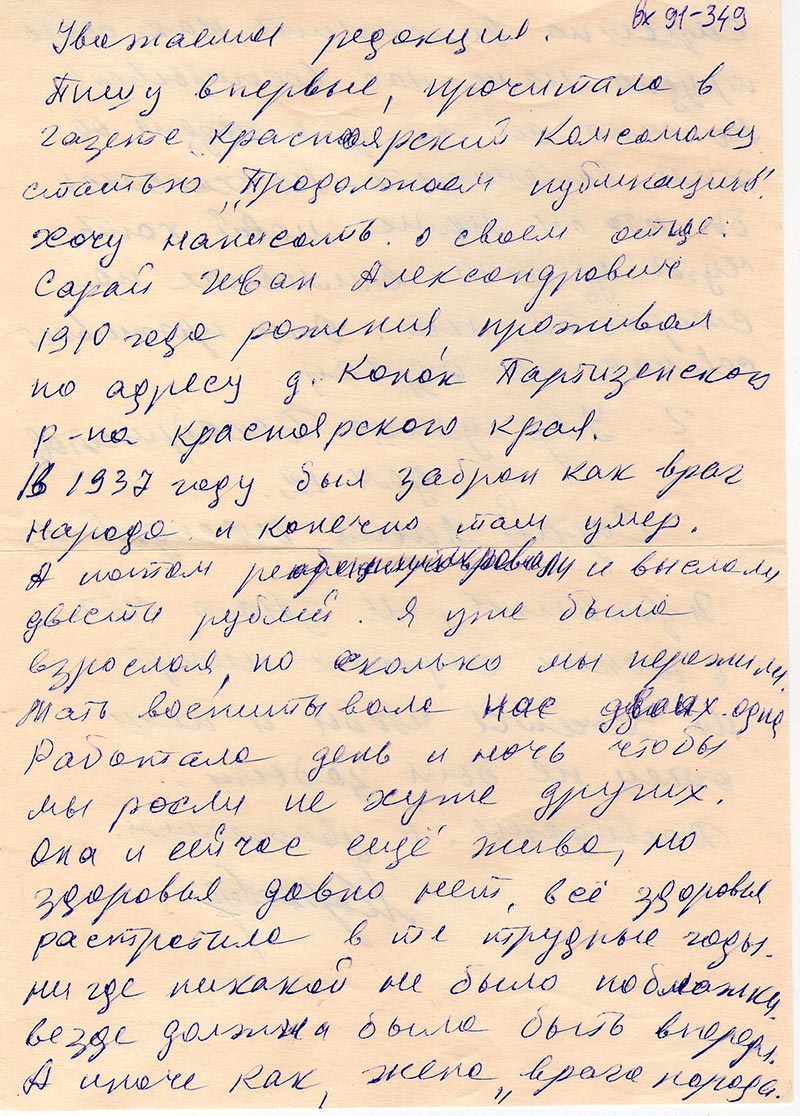 вх 91-349
Уважаемая редакция.
Пишу впервые, прочитала в
газете Красноярский Комсомолец
статью „Продолжаем публикацию".
Хочу написать о своем отце.
Сарай Иван Александрович
1910 года рожения, проживал
по адресу д. Колок Партизенского
р-на Красноярского края.
В 1937 году был забран как враг
народа и конечно там умер.
А потом и выслали
двести рублей. Я уже была
взрослая, но сколько мы пережили.
Мать воспитывала нас двоих одна
Работала день и ночь чтобы
мы росли не хуже других.
Она и сейчас ещё жива, но
здоровья давно нет, всё здоровья
растратила в те трудные годы.
ни где никакой не было поблажки.
везде должна была быть впереди.
А иначе как, жена „врага народа.